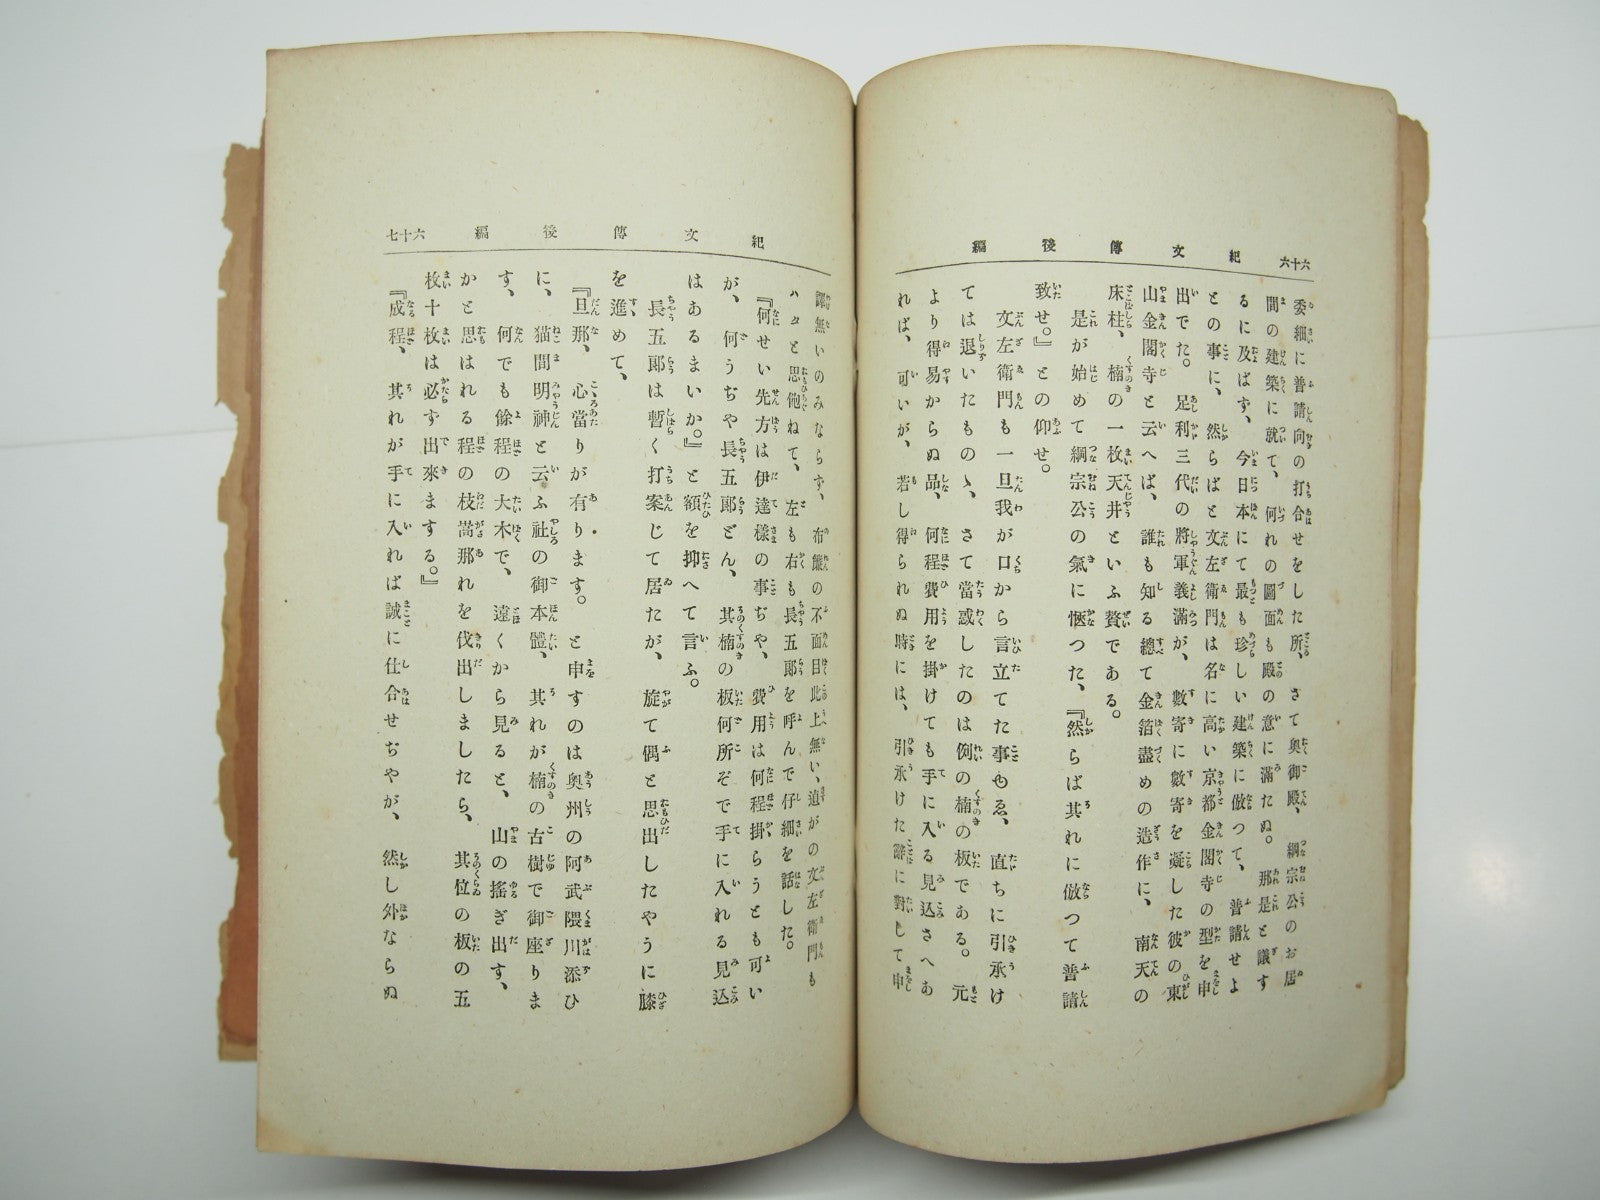 紀文傳後編 六十六
委細に普請向の打合せをした所、さて奥御殿、綱宗公のお居
間の建築に就て、何れの圖面も殿の意に滿たぬ。那是と議す
るに及ばず、今日本にて最も珍しい建築に倣つて、普請せよ
との事に、然らばと文左衛門は名に高い京都金閣寺の型を申
出でた。足利三代の將軍義滿が、數寄に數寄を凝した彼の東
山金閣寺と云へば、誰も知る總て金箔盡めの造作に、南天の
床柱、楠の一枚天井といふ贅である。
是が始めて綱宗公の氣に愜つた、『然らば其れに倣つて普請
致せ。』との仰せ。
文左衛門も一旦我が口から言立てた事もゑ、直ちに引承け
ては退いたものゝ、さて當惑したのは例の楠の板である。元
より得易からぬ品、何程費用を掛けても手に入る見込さへあ
れば、可いが、若し得られぬ時には、引承けた辭に對して申
紀文傳後編 六十七
譯無いのみならず、布簾の不面目此上無い、遉がの文左衛門も
ハタと思倦ねて、左も右も長五郎を呼んで仔細を話した。
『何せい先方は伊達樣の事ぢや、費用は何程掛らうとも可い
が、何うぢや長五郎どん、其楠の板何所ぞで手に入れる見込
はあるまいか。』と額を抑へて言ふ。
長五郎は暫く打案じて居たが、旋て偶と思出したやうに膝
を進めて、
『旦那、心當りが有ります。と申すのは奥州の阿武隈川添ひ
に、猫間明神と云ふ社の御本體、其れが楠の古樹で御座りま
す、何でも餘程の大木で、遠くから見ると、山の搖ぎ出す、
かと思はれる程の枝嵩那れを伐出しましたら、其位の板の五
枚十枚は必ず出來まする。』
『成程、其れが手に入れば誠に仕合せぢやが、然し外ならぬ